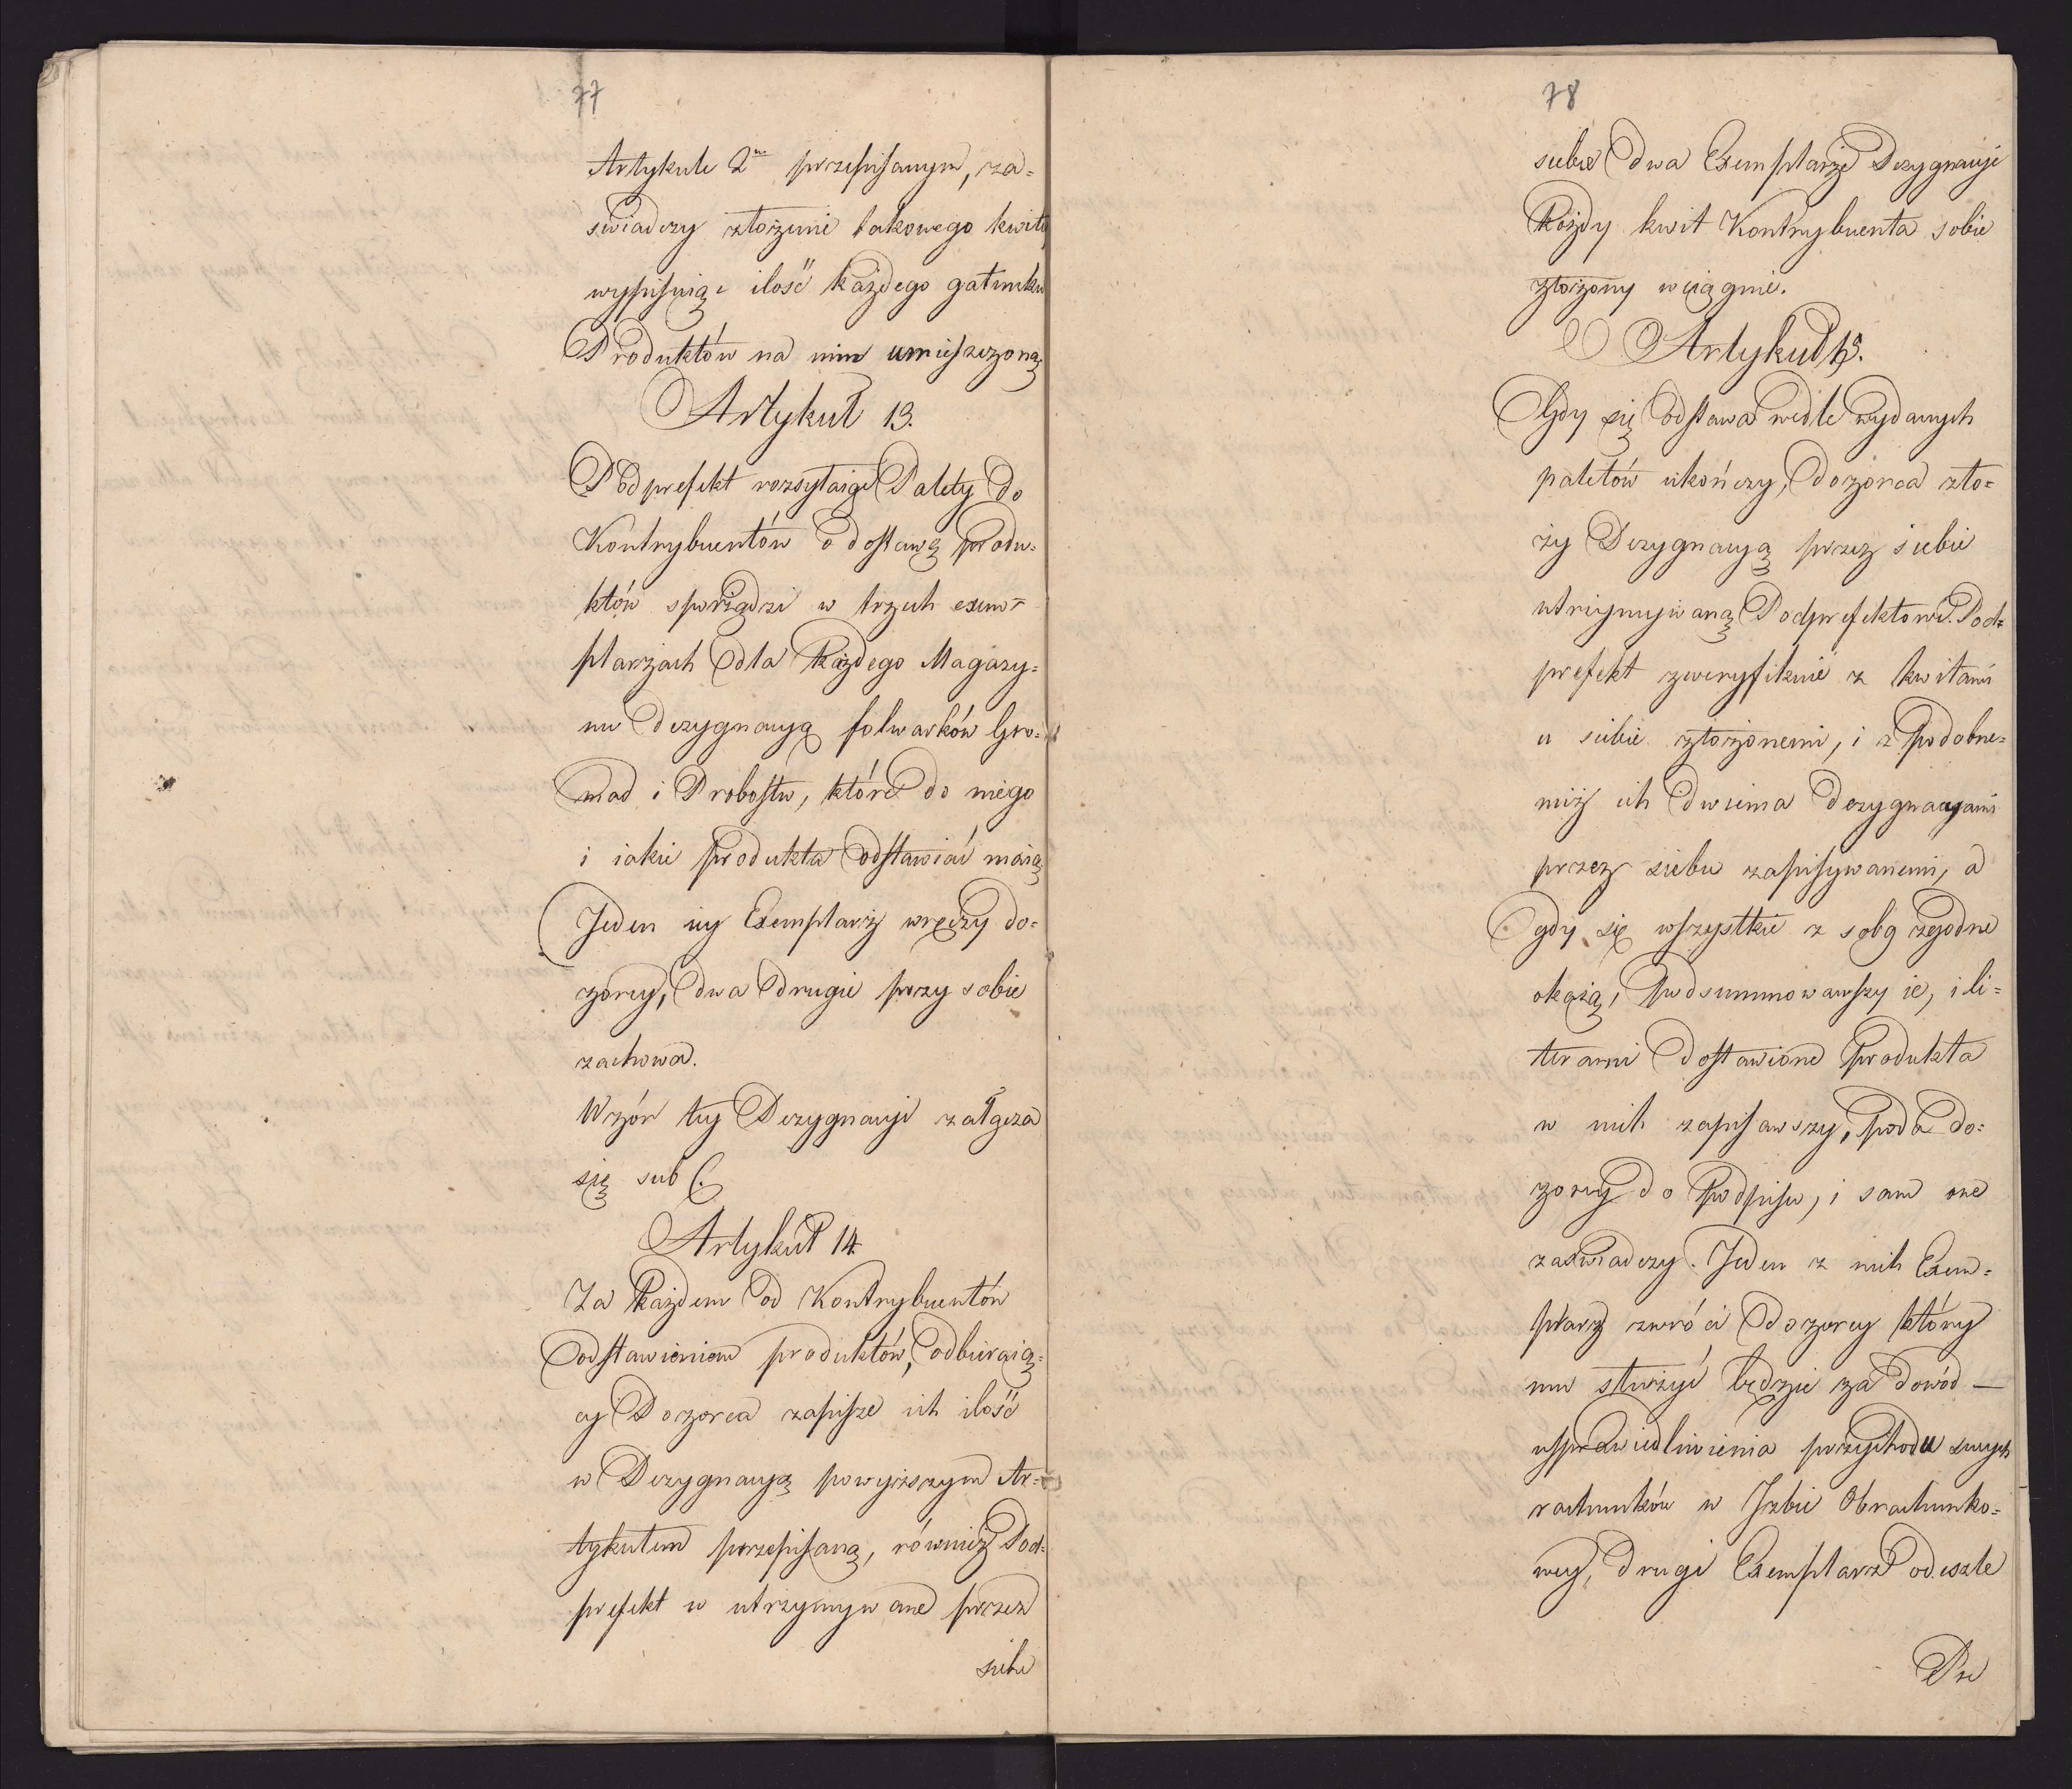 77
Artykule 2m przepisanym, za=
swiadczy złożenie takowego kwitu
wypisuiąc ilość każdego gatunku
Produktów na nim umieszczoną
Artykuł 13.
Podprefekt rozsyłaiąc Palety do
Kontrybuentów o dostawę produ=
któw sporządzi w trzech exem=
plarzach dla każdego Magazy=
nu dezygnacyą folwarków Gro=
mad i Probostw, które do niego
i iakie produkta odstawiać maią
Jeden iey Exemplarz wręczy do=
zorcy, dwa drugie przy sobie
zachowa.
Wzór tey Dezygnacyi załącza
się sub C.
Artykuł 14
Za każdem od Kontrybuentów
odstawieniem produktów, odbieraią=
cy Dozorca zapisze ich ilość
w Dezygnacyą powyższym Ar=
tykułem przepisaną, również Pod=
prefekt w utrzymywane przez
siebie
78
siebie dwa Exemplarze Dezygnacyi
każdy kwit Kontrybuenta sobie
złożony wciągnie.
Artykuł 15.
Gdy się odstawa wedle wydanych
paletów ukończy, Dozorca zło=
ży Dezygnacyą przez siebie
utrzymywaną Podprefektowi. Pod=
prefekt zweryfikuie z kwitami
u siebie złożonemi, i z podobne=
miż ich dwiema dezygnacyami
przez siebie zapisywanemi, a
gdy się wszystkie z sobą zgodne
okażą, podsummowawszy ie, i li=
terami dostawione produkta
w nich zapisawszy, poda do=
zorcy do podpisu, i sam one
zaświadczy. Jeden z nich Exem=
plarz zwróci dozorcy który
mu służyć będzie za dowód —
usprawiedliwienia przychodu swych
rachunków w Jzbie Obrachunko=
wey, drugi Exemplarz odeszle
Pre